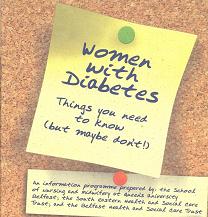 Women
with
Diabetes
Things you need
to know
(but maybe don't!)
An information programme prepared by: the School
of Nursing and Midwifery at Queens University
Belfast; the South Eastern Health and Social Care
Trust; and the Belfast Health and Social Care Trust